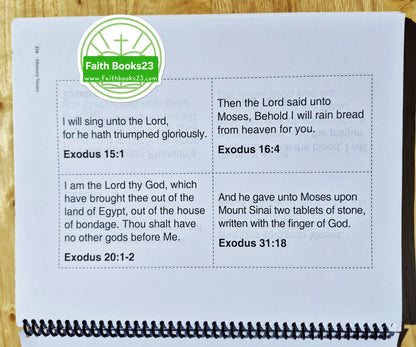 Faith Books23
www.faithbooks23.com
214 Memory Verses
I will sing unto the Lord,
for he hath triumphed gloriously.
Exodus 15:1
Then the Lord said unto
Moses, Behold I will rain bread
from heaven for you.
Exodus 16:4
I am the Lord thy God, which
have brought thee out of the
land of Egypt, out of the house
of bondage. Thou shalt have
no other gods before Me.
Exodus 20:1-2
And he gave unto Moses upon
Mount Sinai two tablets of stone,
written with the finger of God.
Exodus 31:18